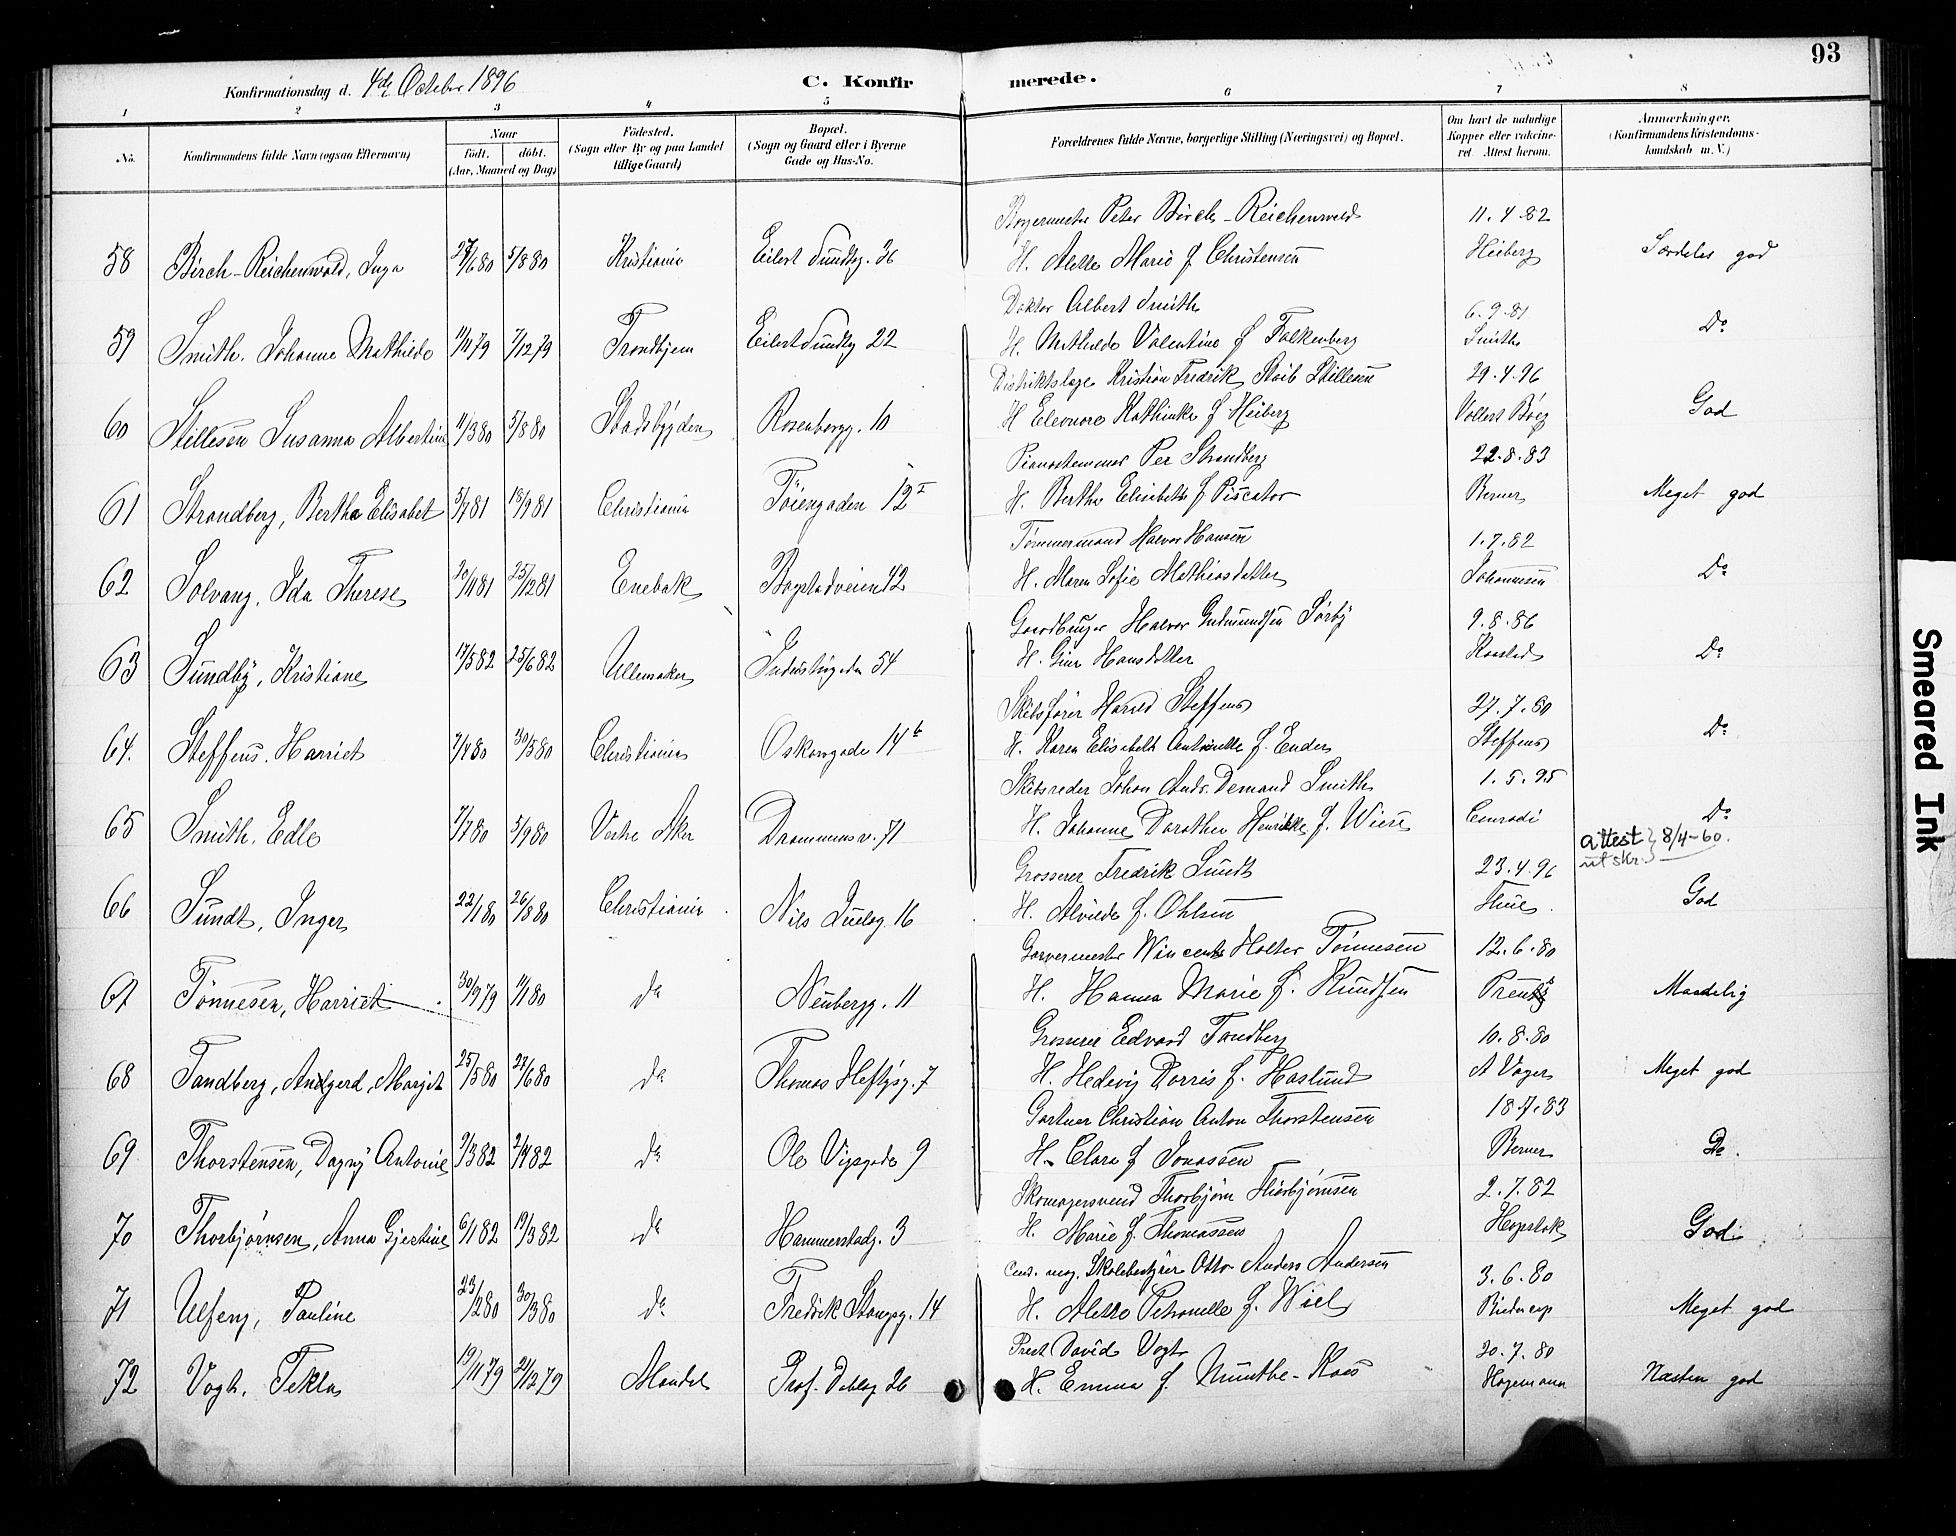 93
Konfirmationsdag d. 4de October 1896
C. Konfirmerede.
1 2 3 4 5 6 7 8
No. Konfirmandens fulde Navn (ogsaa Efternavn) Naar født. døbt. (Aar, Maaned og Dag) Fødested. (Sogn eller By og paa Landet tillige Gaard) Bopæl. (Sogn og Gaard eller i Byerne Gade og Hus-No. Forældrenes fulde Navne, borgerlige Stilling (Næringsvei) og Bopæl. Om havt de naturlige Kopper eller vakcineret. Attest herom. Anmerkninger. (Konfirmandens Kristendomskundskab m. V.)
Peter Birch-Reichenwald 11.4.82
58 Birch-Reichenwald, Inga 27/6 80 5/8 80 Kristiania Eilert Sundtg. 36 H. Alette Marie f. Christensen Heiberg Særdeles god
Doktor Albert Smith 6.9.81
59 Smith, Johanne Mathilde 11/11 79 7/12 79 Trondhjem Eilert Sundtg 22 H. Mathilde Valentine f Falkenberg Smith Do
Distriktslæge Kristian Fredrik Stillesen 29.4.96
60 Stillesen Susanna Albertine 11/3 80 5/8 80 Stadsbygden Rosenborgg. 10 H Eleonore Kathinka f Heiberg Vollert Bøeg God
Pianostemmer Per Strandberg 22.8.83
61 Strandberg, Bertha Elisabet 5/7 81 18/9 81 Christiania Töiengaden 12 I H. Bertha Elisabeth f Piscator Berner Meget god
Tømmermand Halvor Hansen 1.7.82
62 Solvang, Ida Therese 20/11 81 25/12 81 Enebak Bogstadveien 42 H. Maren Sofie Mathiasdatter Johannesen Do
Gaardbruger Halvor Gulmundsen Sørby 9.8.86
63 Sundby, Kristiane 17/5 82 25/6 82 Ullensaker Industrigaden 54 H. Gina Hansdatter Do
Skibsfører Harald Steffens 27.7.80
64. Steffens, Harriet 7/4 80 30/5 80 Christiania Oskarsgade 14 b H. Karen Elisabeth Antoinette f. Ender Steffens Do
Skibsreder Johan Andr. Demand Smith 1.5.95
65 Smith, Edle 7/7 80 5/9 80 Vestre Aker Drammensv. 71 H. Johanne Dorothea Henrikke f. Wiese Conradi Do
Attest utskr. } 8/4-60.
Grosserer Fredrik Sundt 23.4.96
66 Sundt, Inger 22/1 80 26/8 80 Christiania Nils Juelsg. 16 H. Alvilde f. Ohlsen Thiis God
Garvermester Wincents Holter Tönnesen 12.6.80
67 Tönnesen, Harriet 30/9 79 1/1 80 do Neubergg. 11 H. Hanna Marie f. Knudsen Maadelig
Grosserer Edvard Tandberg 10.8.80
68 Tandberg, Andgerd Margit 25/5 80 27/6 80 do Thomas Heftysg. 7 H. Hedevig Dorris f. Haslund A Vogers Meget god
Gartner Christian Anton Thorstensen 18.7.83
69 Thorstensen, Dagny Antonie 9/3 82 2/4 82 do Ole Vigsgade 9 H. Clara f Jonassen Berner Do.
Skomagersvend Thorbjørn Thorbjørnsen 2.7.82
70 Thorbjørnsen, Anna Gjertine 6/1 82 19/3 82 do Hammerstadg. 3 H. Marie f. Thomassen Hopstok God
Cand. mag. Skolebestyrer Otto Anders Andersen 3.6.80
71 Ulfeng, Pauline 23/2 80 30/3 80 do Fredrik Stangsg. 14 H. Alette Petronelle f. Wiel Meget god
Prest David Vogt 20.7.80
72 Vogt, Tekla 19/11 79 21/12 79 Mandal Prof. Dahlsg 26 H. Emma f. Munthe-Kaas Hagemann Næsten god
Smeared Ink